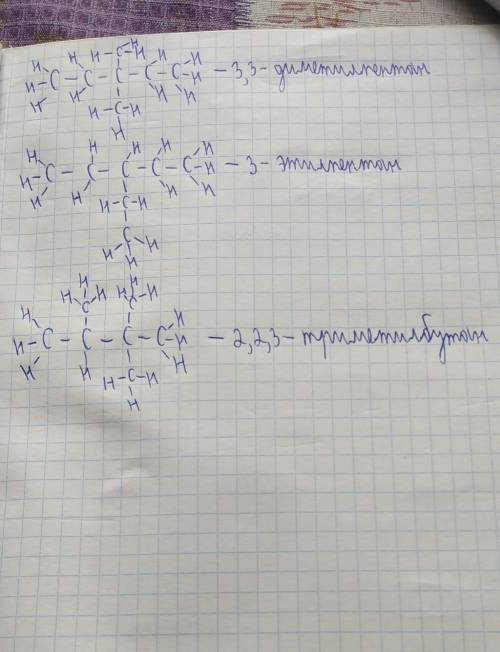 H H H-C-H H H
H-C-C-C-C-C-H - 3,3-диметилпентан
H H H-C-H H H
H
H H H H H
H-C-C-C-C-C-H - 3-этилпентан
H H H-C-H H H
H-C-H
H
H H
H-C-H H-C-H
H H
H-C-C-C-C-H - 2,2,3-триметилбутан
H H H-C-H H
H